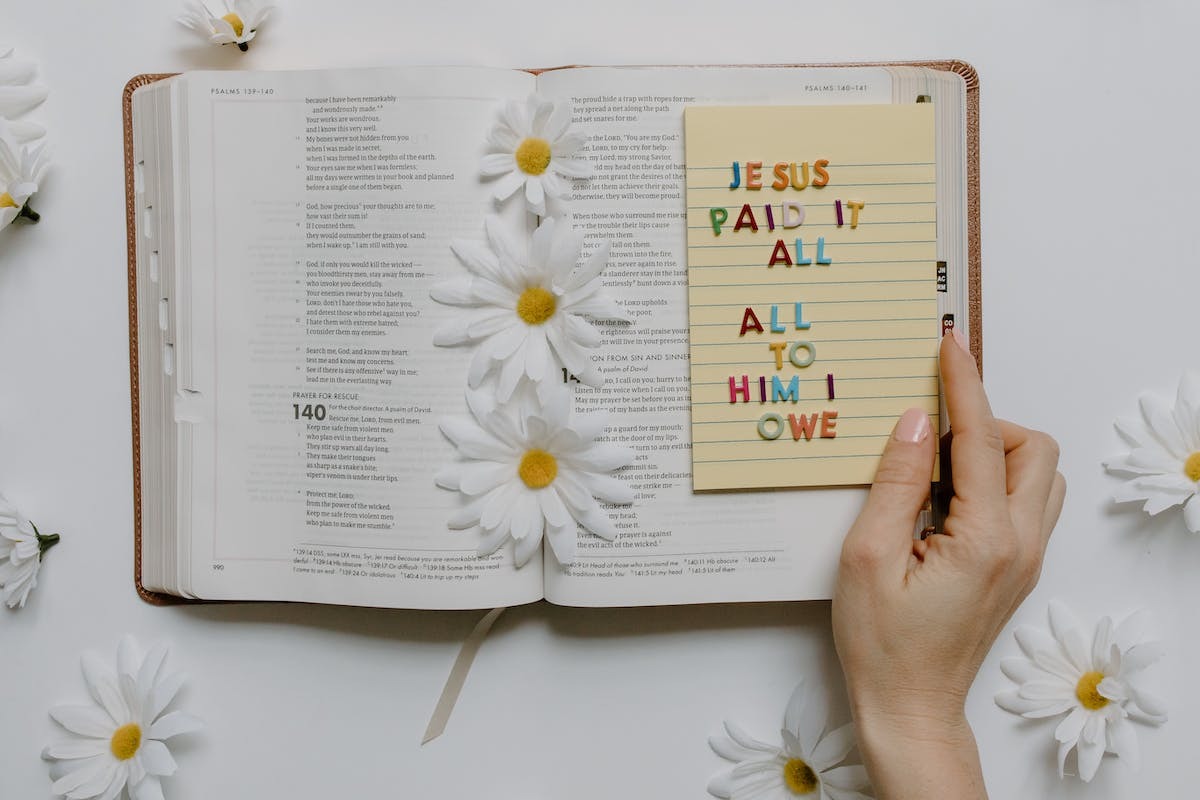 PSALMS 139–140
because I have been remarkably
and wondrously made.
Your works are wondrous,
and I know this very well.
My bones were not hidden from you
when I was made in secret,
when I was formed in the depths of the earth.
Your eyes saw me when I was formless;
all my days were written in your book and planned
before a single one of them began.
God, how precious your thoughts are to me;
how vast their sum is!
If I counted them,
they would outnumber the grains of sand;
when I wake up, I am still with you.
God, if only you would kill the wicked —
you bloodthirsty men, stay away from me —
who invoke you deceitfully.
Your enemies swear by you falsely.
LORD, don't I hate those who hate you,
and detest those who rebel against you?
I hate them with extreme hatred;
I consider them my enemies.
Search me, God, and know my heart;
test me and know my concerns.
See if there is any offensive way in me;
lead me in the everlasting way.
PRAYER FOR RESCUE
140 For the choir director. A psalm of David.
Rescue me, LORD, from evil men.
Keep me safe from violent men
who plan evil in their hearts.
They stir up wars all day long.
They make their tongues
as sharp as a snake's bite;
viper's venom is under their lips.
Protect me, LORD,
from the power of the wicked.
Keep me safe from violent men
who plan to make me stumble.
990
PSALMS 140–141
The proud hide a trap with ropes for me;
they spread a net along the path
and set snares for me.
to the LORD, "You are my God."
LORD, to my cry for help.
my Lord, my strong Savior,
my head on the day of
do not grant the desires of the
do not let them achieve their goals.
Otherwise, they will become proud.
When those who surround me rise up
may the trouble their lips cause
overwhelm them.
fall on them.
thrown into the fire,
never again to rise.
a slanderer stay in the land
hunt down a
the LORD upholds
the poor,
for the needy.
the righteous will praise your
will live in your presence.
FROM SIN AND SINNERS
A psalm of David.
LORD, I call on you; hurry to
Listen to my voice when I call on you.
May my prayer be set before you as
the raising of my hands as the evening
up a guard for my mouth;
watch at the door of my lips.
turn to any evil
acts
commit sin.
feast on their delicacies.
one strike me —
love;
rebuke me
my head;
refuse it.
Even my prayer is against
the evil acts of the wicked.
JESUS
PAID IT
ALL
ALL
TO
HIM I
OWE